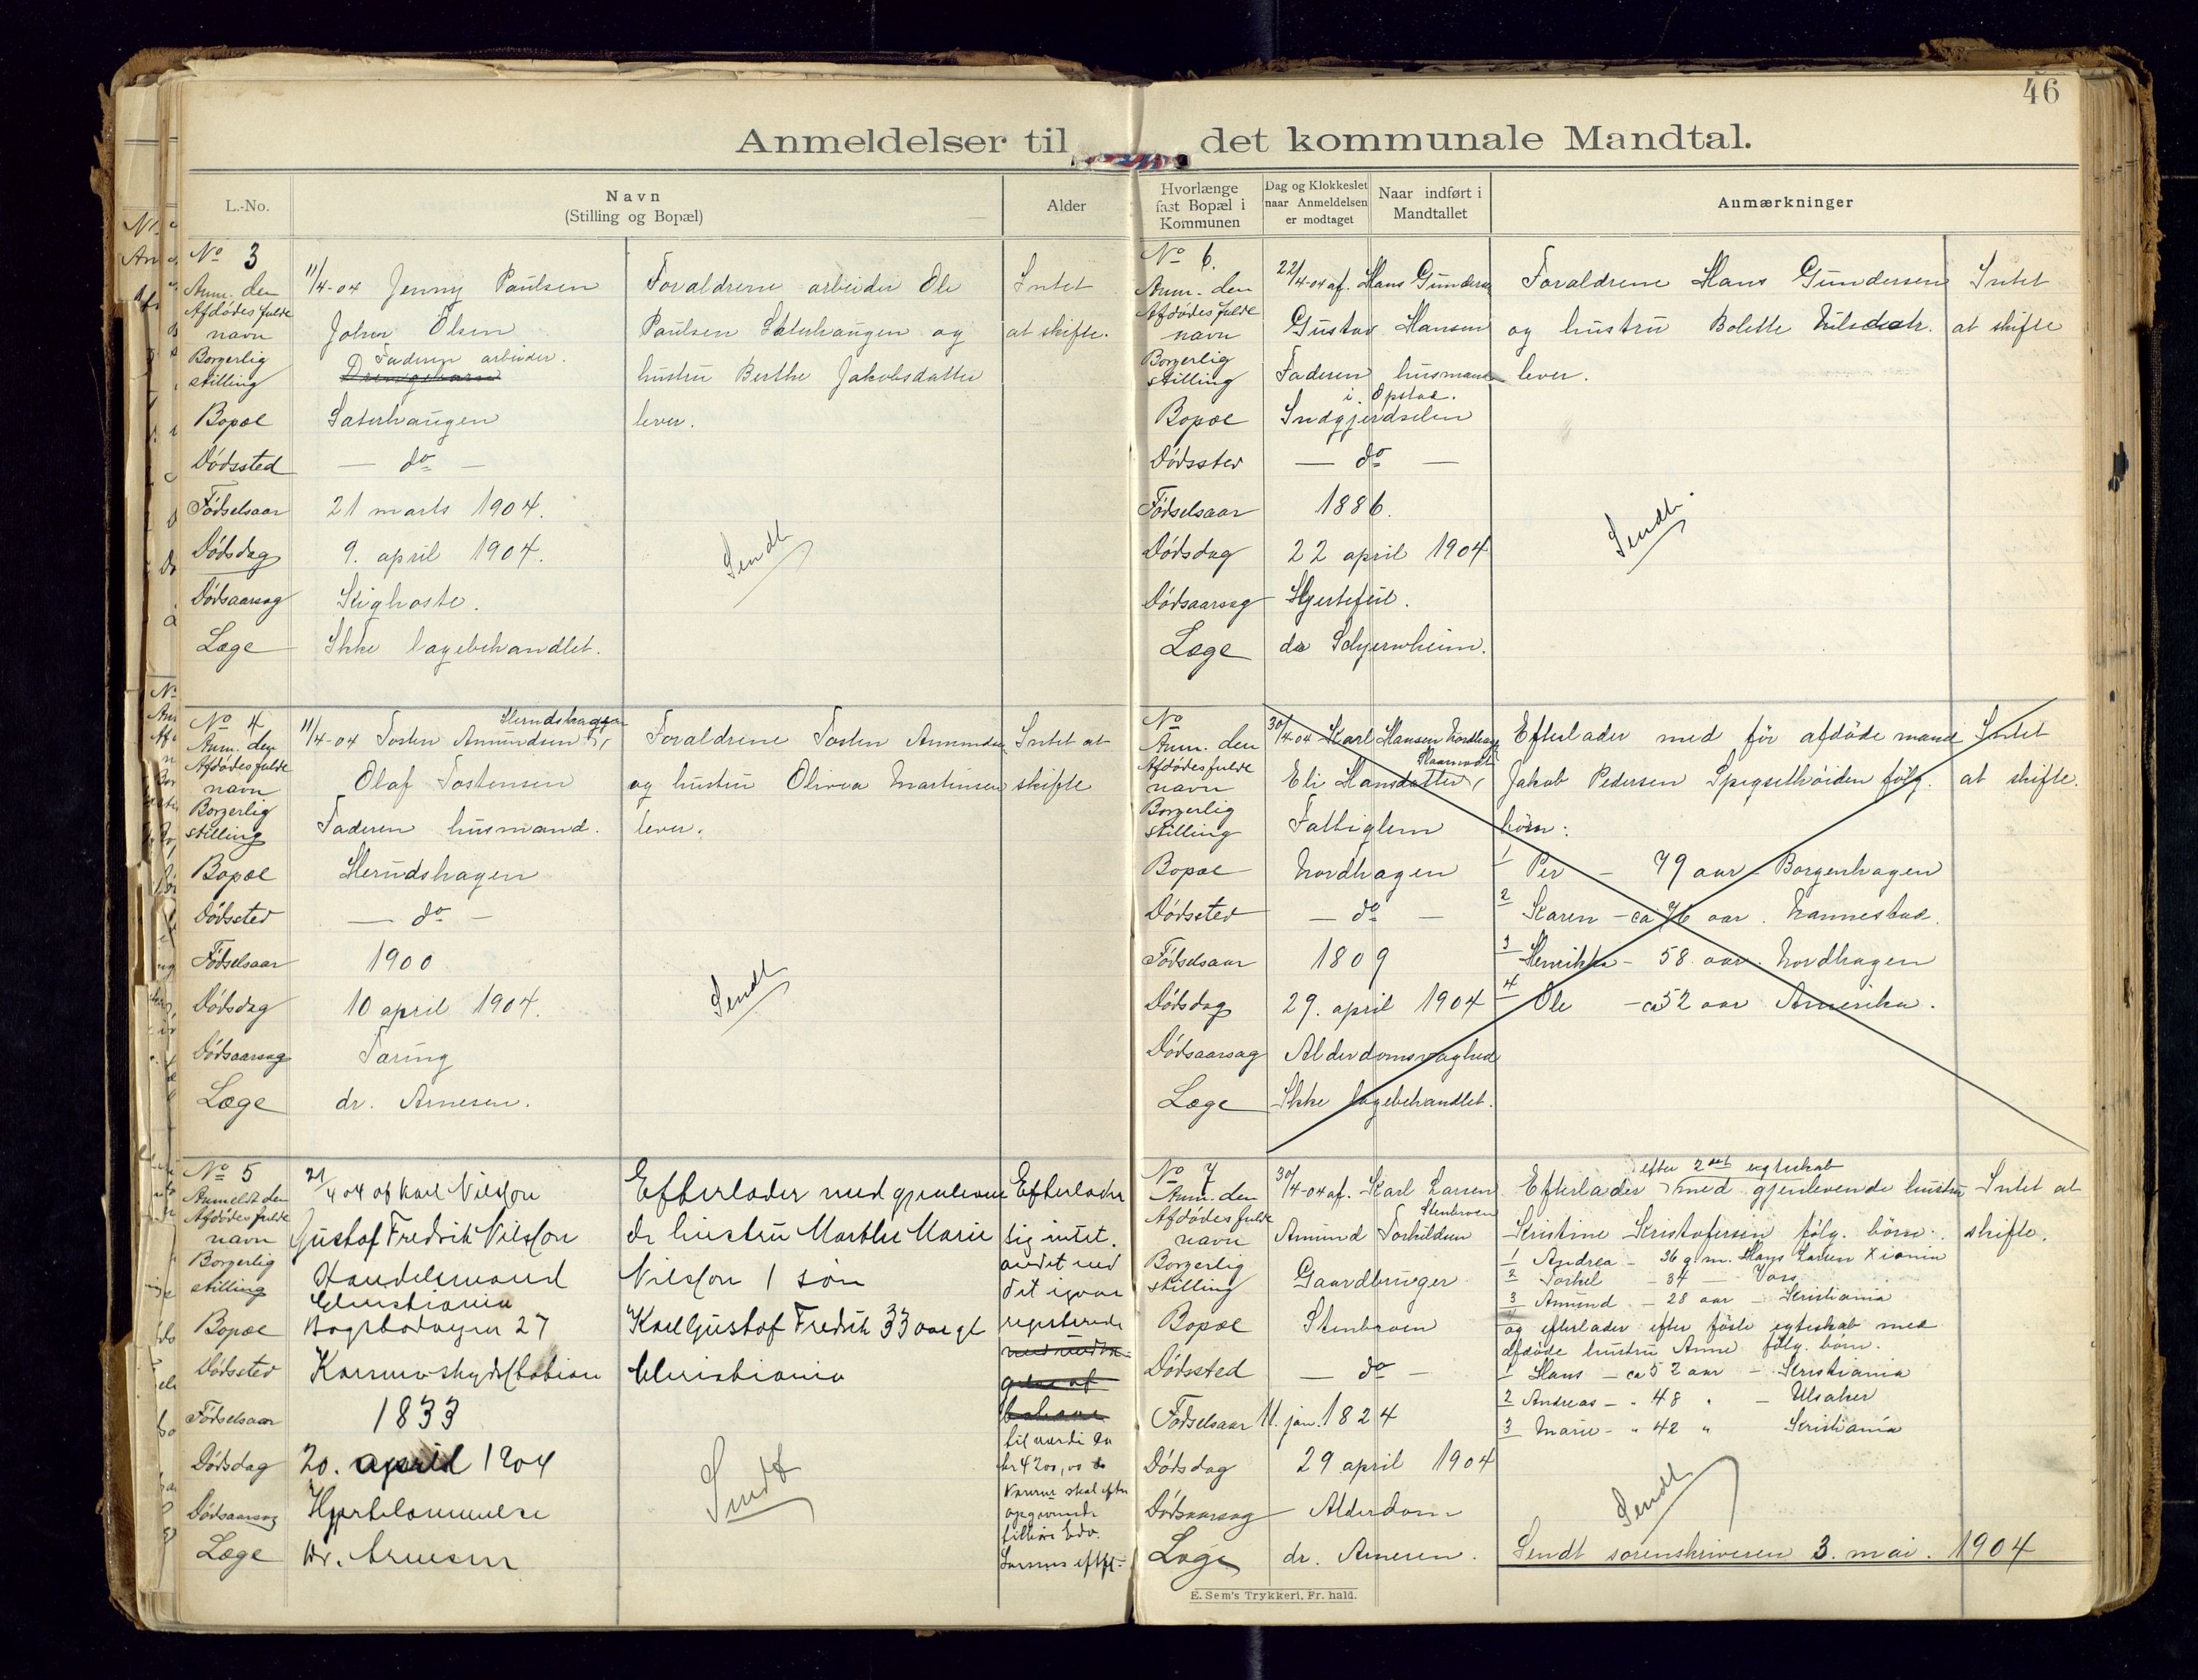 46
Anmeldelser til det kommunale Mandtal.
L.-No.
Navn
(Stilling og Bopæl)
Alder
No 3
Anm. den 11/4-04 Jenny Paulsen
Afdödes fulde navn Johan Olsen
Borgerlig stilling Faderen arbeider.
Bopæl Sæterhaugen
Dödssted — do —
Födselsaar 21 marts 1904.
Dödsdag 9. april 1904.
Dödsaarsag Kighoste.
Læge Ikke lægebehandlet.
Forældrene arbeider Ole
Paulsen Sæterhaugen og
hustru Berthe Jakobsdatter
lever.
Sendt
Intet
at skifte.
No 4
Anm. den 11/4-04 Tosten Amundsen
Afdödes fulde navn Olaf Tostensen
Borgerlig stilling Faderen husmand.
Bopæl Herudshagen
Dödssted — do —
Födselsaar 1900
Dödsdag 10 april 1904.
Dödsaarsag Tæring
Læge dr. Arnesen.
Forældrene Tosten Amundsen
og hustru Olivea Martinsen
lever.
Sendt
Intet at
skifte
No 5
Anmeldt den 21/4 04 af Karl Nilsson
Afdödes fulde navn Gustaf Fredrik Nilsson
Borgerlig stilling Handelsmand
Christiania
Bopæl Bogstadveien 27
Dödssted
Födselsaar 1833
Dödsdag 20. april 1904
Dödsaarsag Hjertelammelse
Læge Dr. Arnesen
Efterlader med gjenleven
de hustru Marthe Marie
Nilsson 1 sön
Karl Gustaf Fredrik 33 aar gl
Christiania
Sendt
Efterlader
sig intet.
andet end
det
registrerede
til værdi ca
kr 4200,00
Varerne skal efter
opgivende
tilhöre Edv.
Larsens eftf.
Hvorlænge
fast Bopæl i
Kommunen
Dag og Klokkeslet
naar Anmeldelsen
er modtaget
Naar indført i
Mandtallet
Anmærkninger
No 6.
Anm. den 22/4-04 af. Hans Gundersen
Afdödes fulde navn Gustav Hansen
Borgerlig stilling Faderen husmand
i Opstad.
Bopæl Indgjerdselen
Dödssted — do —
Födselsaar 1886.
Dödsdag 22 april 1904
Dödsaarsag Hjertefeil.
Læge dr Scheyernheim.
Forældrene Hans Gundersen
og hustru Bolette Nilsdatr.
lever.
Sendt
Intet
at skifte
No
Anm. den 30/4-04 Karl Hansen Nordhagen
Afdödes fulde navn Eli Hansdatter,
Borgerlig stilling Fattiglem
Bopæl Nordhagen
Dödssted — do —
Födselsaar 1809
Dödsdag 29. april 1904
Dödsaarsag Alderdomssvaghed
Læge Ikke lægebehandlet.
Efterlader med för afdöde mand
Jakob Pedersen Spigsethöiden fölg.
börn:
1 Per — 79 aar — Borgenhagen
2 Karen — ca 76 aar. Nannestad.
3 Henrikka — 58 aar. Nordhagen
4 Ole — ca 52 aar Amerika.
Intet
at skifte.
No 7
Anm. den 30/4-04 af. Karl Larsen
Stenbroen
Afdödes fulde navn Amund Torkildsen
Borgerlig stilling Gaardbruger
Bopæl Stenbroen
Dödssted — do —
Födselsaar 11. jan. 1824
Dödsdag 29 april 1904
Dödsaarsag Alderdom
Læge dr. Arnesen.
efter 2det egteskab
Efterlader med gjenlevende hustru
Kristine Kristofersen fölg. börn:
1 Andrea — 36 g. m. Hans Larsen Xiania
2 Torkel — 34 — Vors
3 Amund — 28 aar — Kristiania
og efterlader efter förste egteskab med
afdöde hustru Anne fölg. börn.
1 Hans — ca 52 aar — Kristiania
2 Andreas — " 48 " — Ulsaker
3 Marie — " 42 " Kristiania
Sendt
Sendt sorenskriveren 3. mai. 1904
Intet at
skifte.
E. Sem's Trykkeri, Fr. hald.